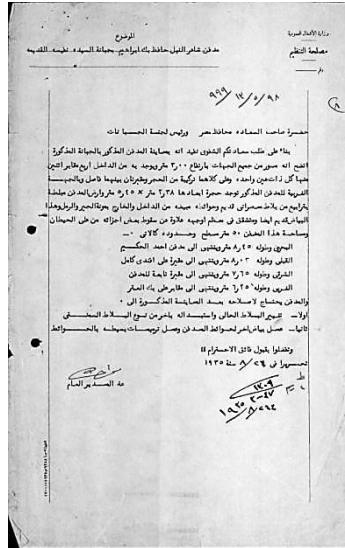 وزارة الأشغال العمومية
مصلحة التنظيم
الموضوع
مدفن شاعر النيل حافظ بك ابراهيم بجبانة السيده نفيسه القديمه
حضرة صاحب السعاده محافظ مصر ورئيس لجنة الجبانات
بناء على طلب سعادتكم الشفوى نفيد انه بمعاينة المدفن المذكور بالجبانة المذكورة
اتضح انه مسور من جميع الجهات بارتفاع ٣٫٠٠ متر ويوجد به من الداخل اربع مقابر اثنين
منها كل ذات عين واحده وعلى كلاهما تركيبة من الحجر ومقبرتان بينهما فاصل وبالجهة
الغربية للمدفن المذكور توجد حجرة ابعادها ٣٫٣٨ متر × ٥٫٤٥ متر وارض المدفن مبلطة
بترابيع من بلاط قديم وحوائطه مبيضه من الداخل والخارج بمونة الجير والرمل وهذا
البياض قديم ايضا ومتشقق فى معظم اوجهه علاوة عن سقوط بعض اجزائه من على الحيطان
ومساحة هذا المدفن ٥٠ متر مسطح وحدوده كالاتى :ـ
البحرى وطوله ٨٫٢٥ متر وينتهى الى مدفن احمد الحكيم
القبلى وطوله متر وينتهى الى مقبرة على افندى كامل
الشرقى وطوله ٧٫٦٥ متر وينتهى الى مقبرة تابعة للمدفن
الغربى وطوله متر وينتهى الى مقابر على بك
والمدفن يحتاج لاصلاحه بعد المعاينة المذكورة الى :
اولا ـ تغيير البلاط الحالى واستبداله باخر من نوع البلاط
ثانيا ـ عمل بياض اخر لحوائط المدفن وعمل ترميمات بسيطه بالحوائط
وتفضلوا بقبول فائق الاحترام
تحريرا فى ٢٤/٨ سنة ١٩٣٥
عن المدير العام